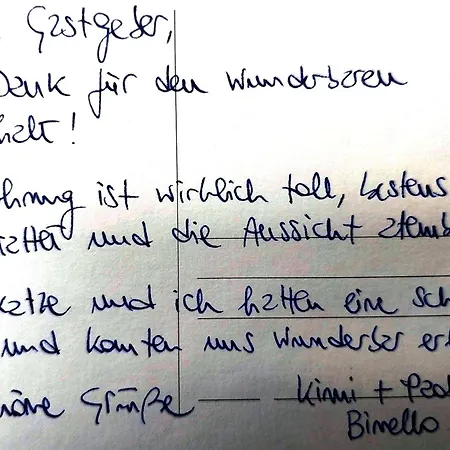 Gastgeber,
Dank für den wunderbaren
halt!
hnung ist wirklich toll, bestens
tattet und die Aussicht atemb
atze und ich hatten eine sch
und konnten uns wunderbar er
höne Grüße Kimi + Pao
Bimello